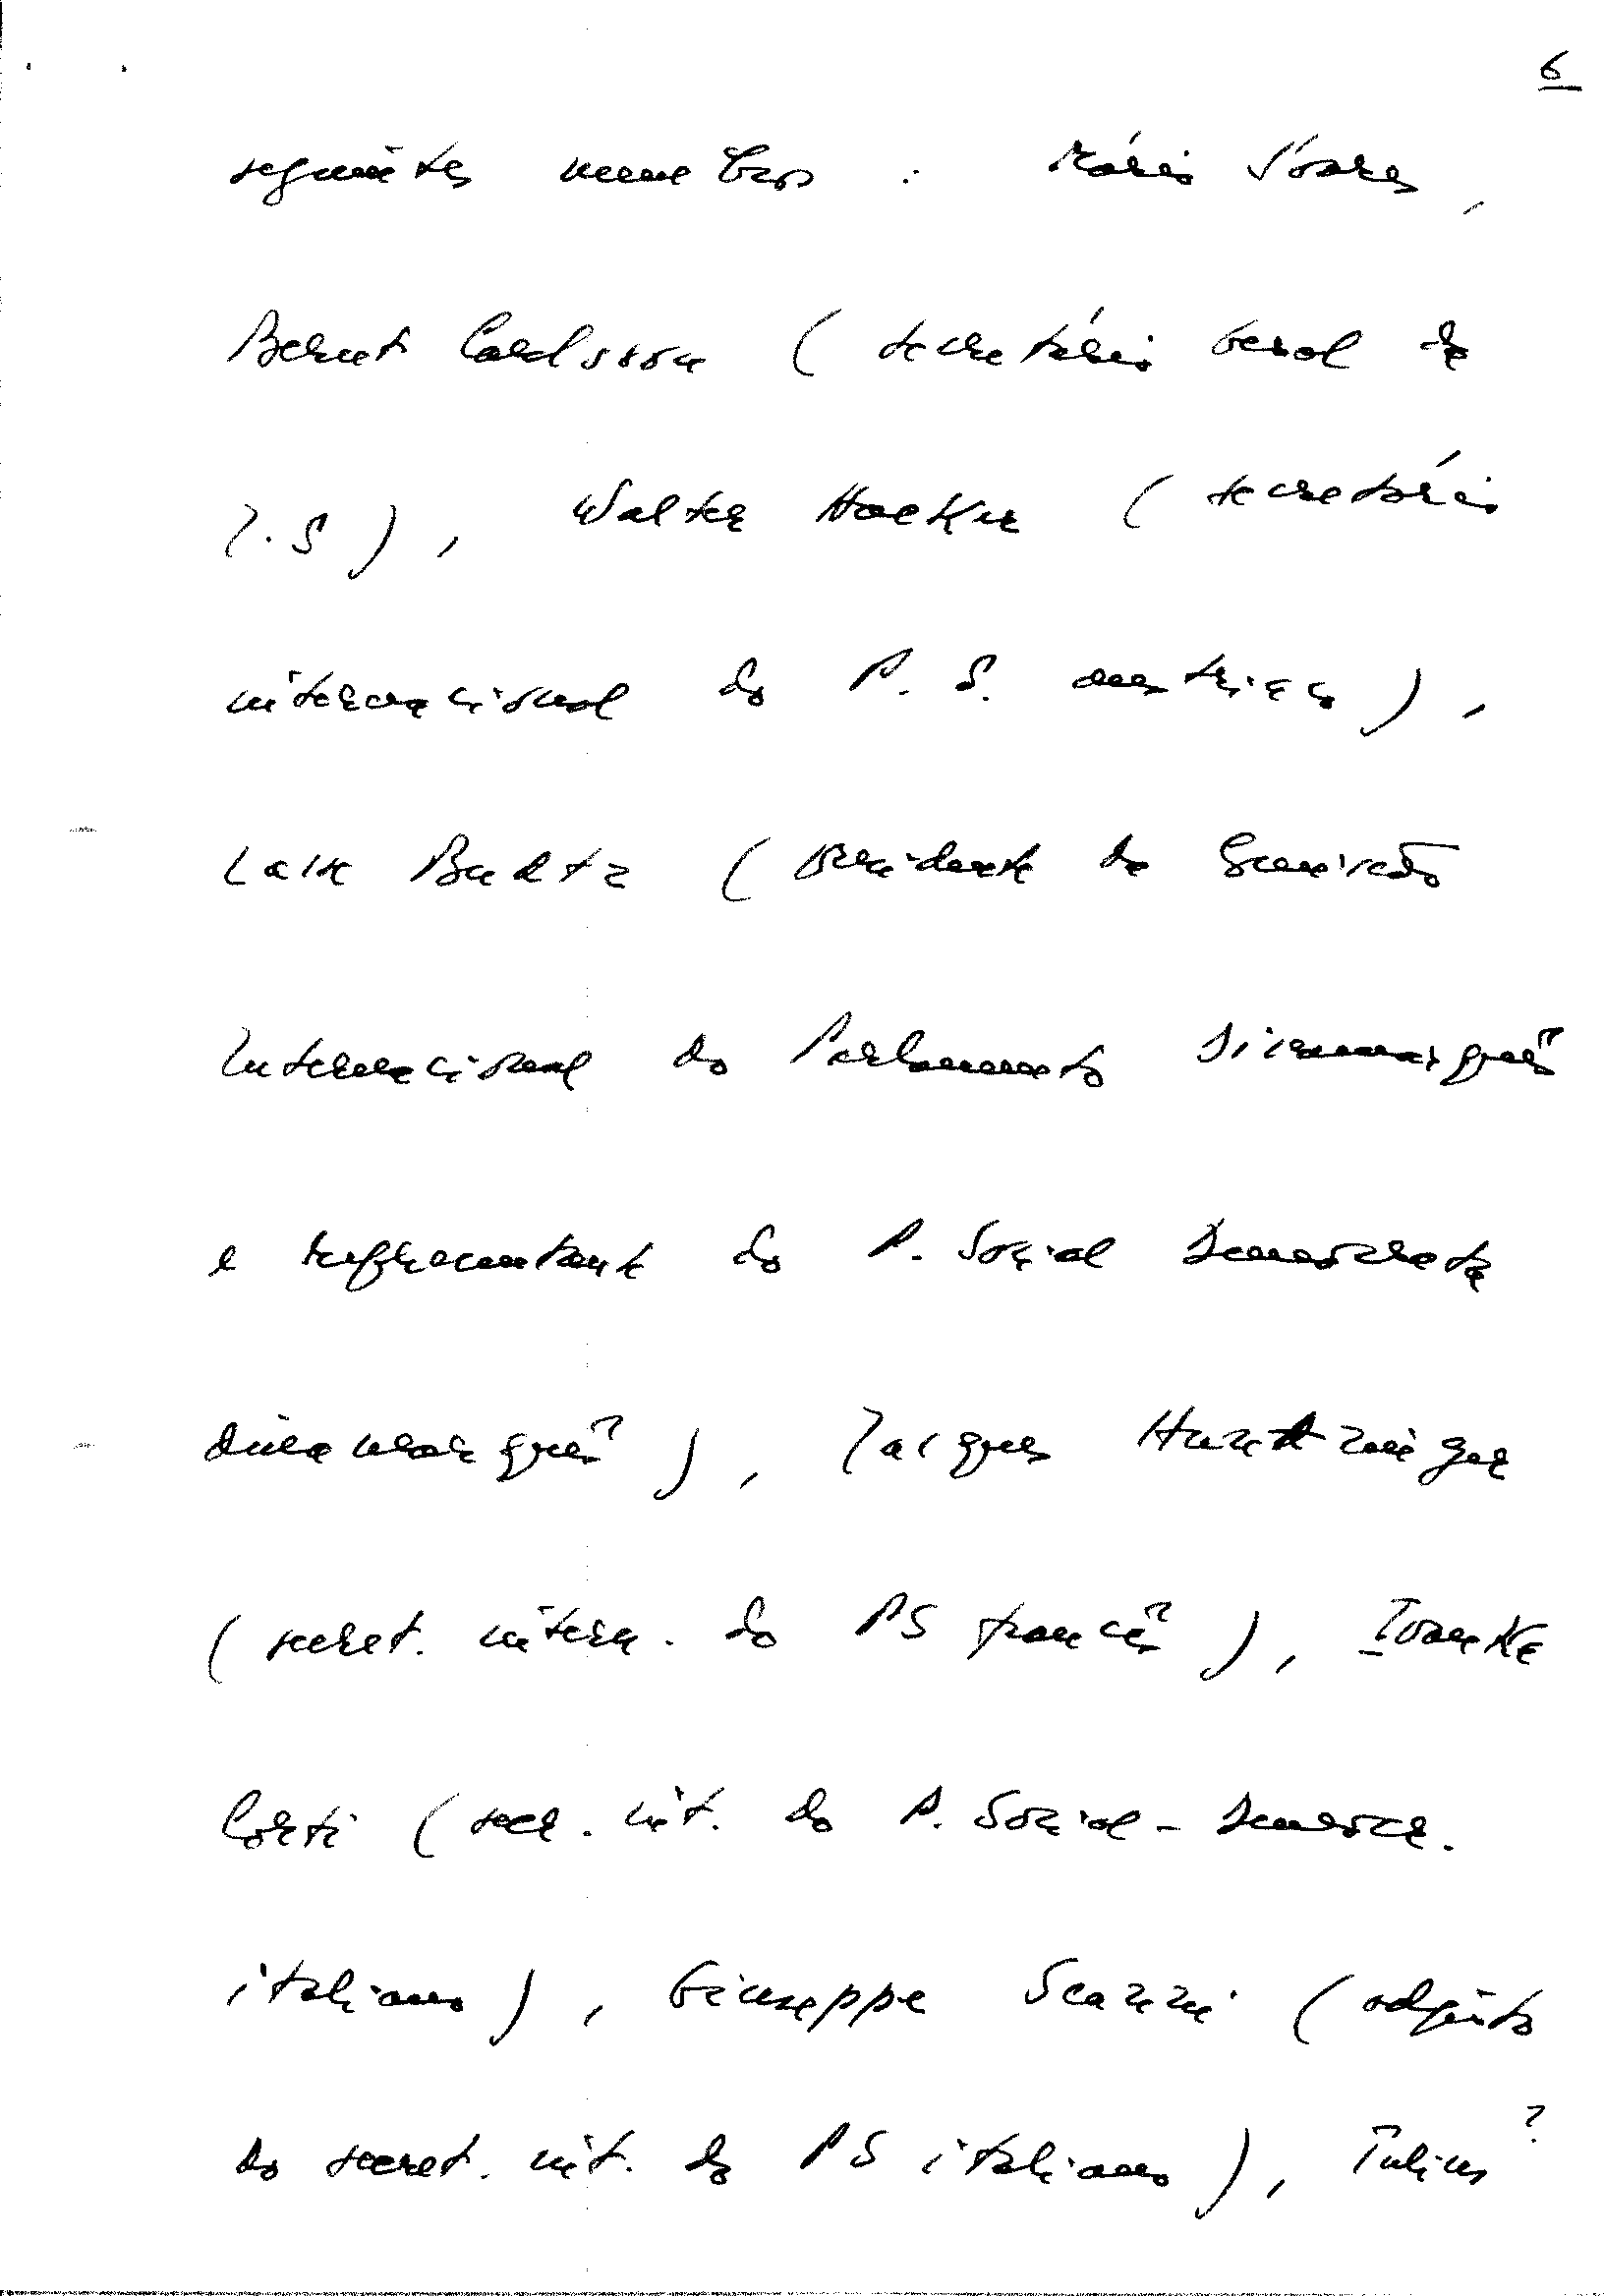 6
seguintes membros : Mário Soares,
Bernt Carlsson ( secretário geral da
I.S ) , Walter Hacker ( secretário
internacional do P. S. austríaco ) ,
Lasse Budtz ( Presidente da Comissão
Internacional do Parlamento Dinamarquês
e representante do P. Social Democrata
dinamarquês ) , Jacques Huntzinger
( secret. intern. do PS francês ) , Ivanka
Corti ( secr. int. do P. Social - Democr.
italiano ) , Giuseppe Scanni ( adjunto
do secret. int. do PS italiano ) ,